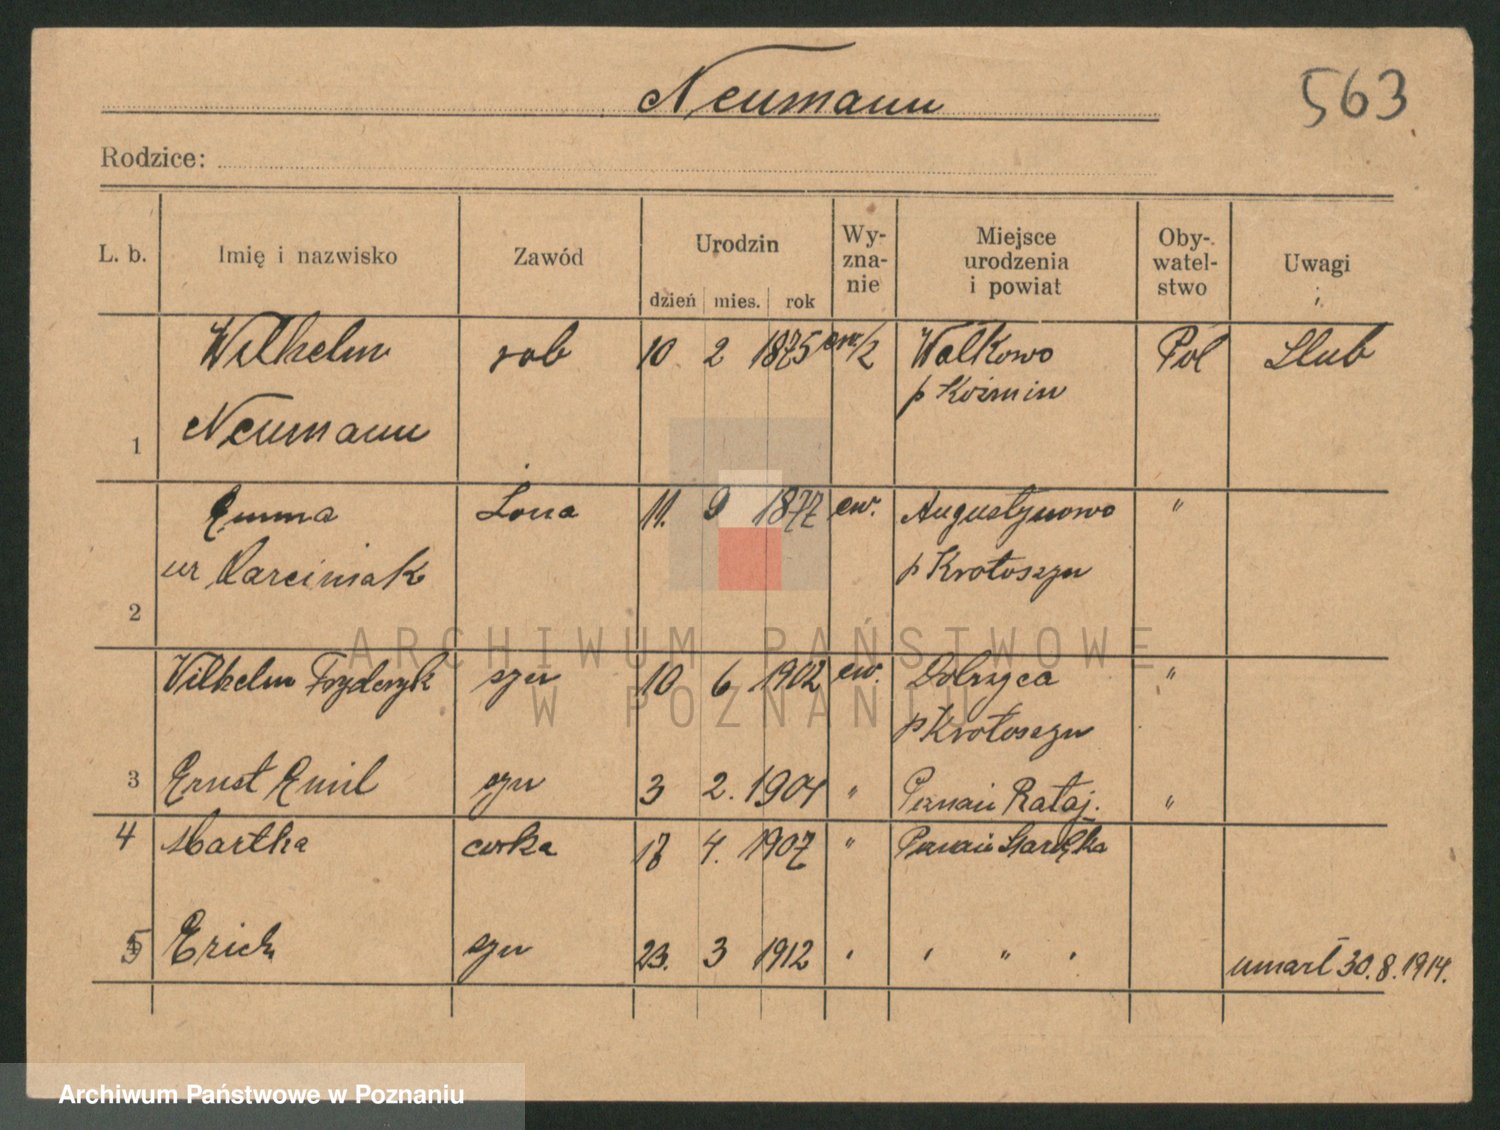 Neumann
563
Rodzice:
L. b.
Imię i nazwisko
Zawód
Urodzin
dzień mies. rok
Wy-
zna-
nie
Miejsce
urodzenia
i powiat
Oby-
watel-
stwo
Uwagi
Wilhelm rob 10 2 1875 ew/2 Walkowo Pol Slub
p Koźmin
1 Neumann
Emma Żona 11. 9 1877 ew. Augustynowo "
ur p Krotoszyn
2
Vilhelm Fryderyk syn 10 6 1902 ew. Dobrzyca "
p Krotoszyn
3 Ernst Emil syn 3 2. 1904 " Poznań Rataj. "
4 Martha corka 17 4. 1907 " Poznań
5 Erich syn 23. 3 1912 " " " " umarł 30.8.1914.
ARCHIWUM PAŃSTWOWE
W POZNANIU
Archiwum Państwowe w Poznaniu